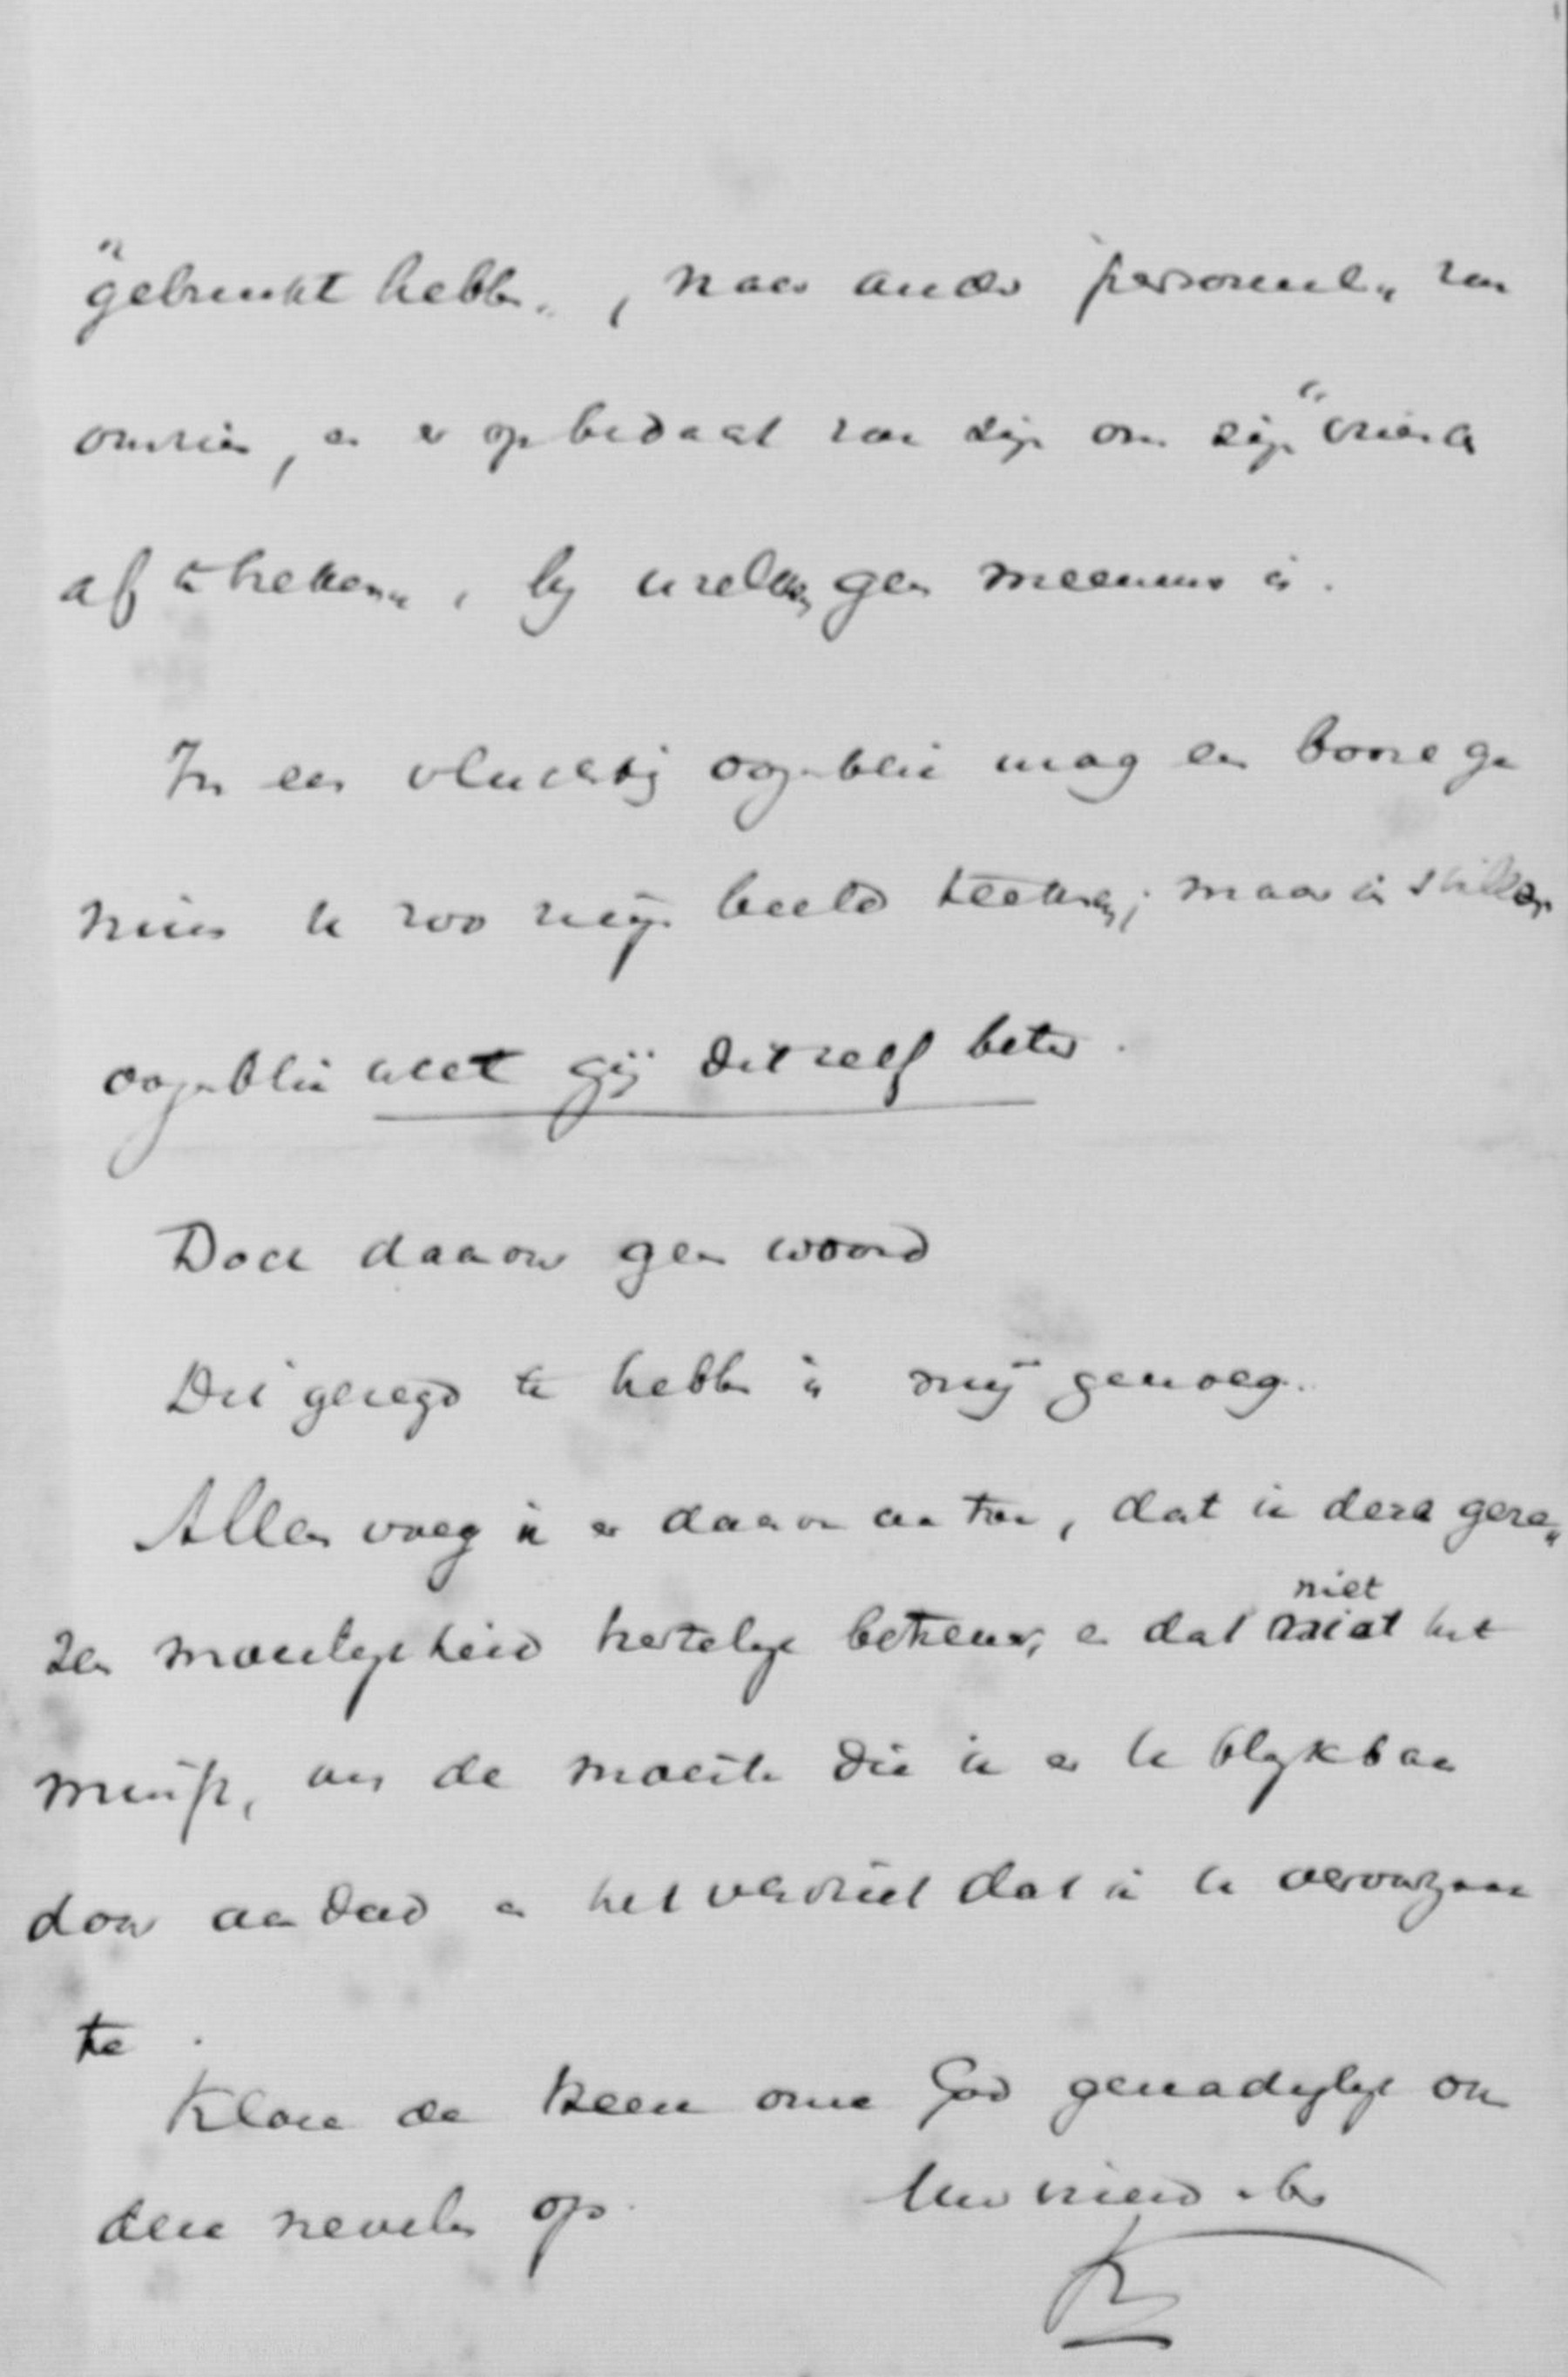 "gebruikt hebben", naar ander personeel zou
omzien, en er op bedacht zou zijn om zijn "vriend
af te trekken, bij u zelven geen meenens is.
In een vluchtig oogenblik mag een booze ge
nius u zoo mijn beeld teekenen; maar in stillen
oogenblik weet gij dit zelf beter.
Doch daarover geen woord
Dit gezegd te hebben is mij genoeg.
Alleen voeg ik er daarom aan toe, dat ik deze gere„
zen moeilijkheid hartelijk betreur, en dat niet het
minst, om de moeite die ik er u blijkbaar
door aandeed en het verdriet dat ik u veroorzaak
te.
Klare de Heere onze God genadiglijk ook
deze nevelen op. Uw vriend en br
K